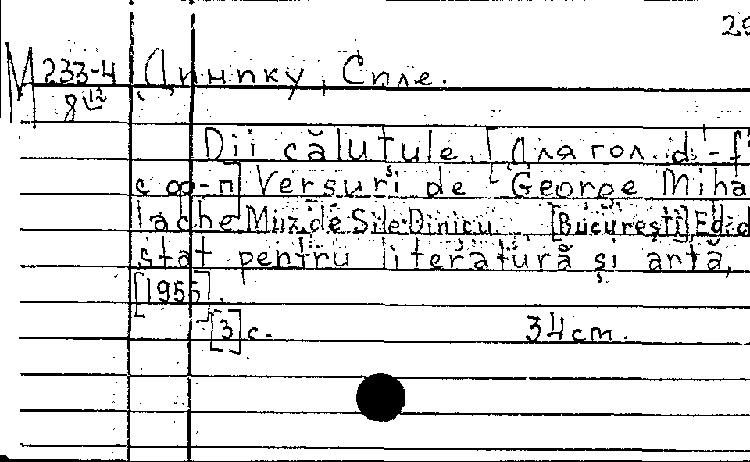 29
M 233-4 Динику, Силе.
8
Dii căluțule. [Для гол. d'-f'
с ф-п] Versuri de George Miha
lache Muz. de Sile Dinicu. [București] Ed. d
stat pentru literatură și artă,
[1955].
[3] с. 34 cm.